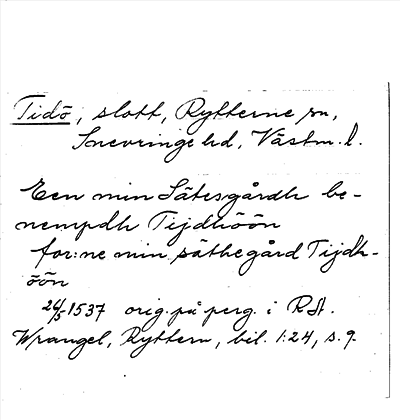 Tidö, slott, Rytterne sn,
Snevringe hd, Västm. l.
Een min Sätesgårdh be-
nempdh Tijdhöön
for:ne min säthegård Tijdh-
öön
26/5 1537 orig. på perg. i RA.
Wrangel, Ryttern, bil. 1:24, s. 9.